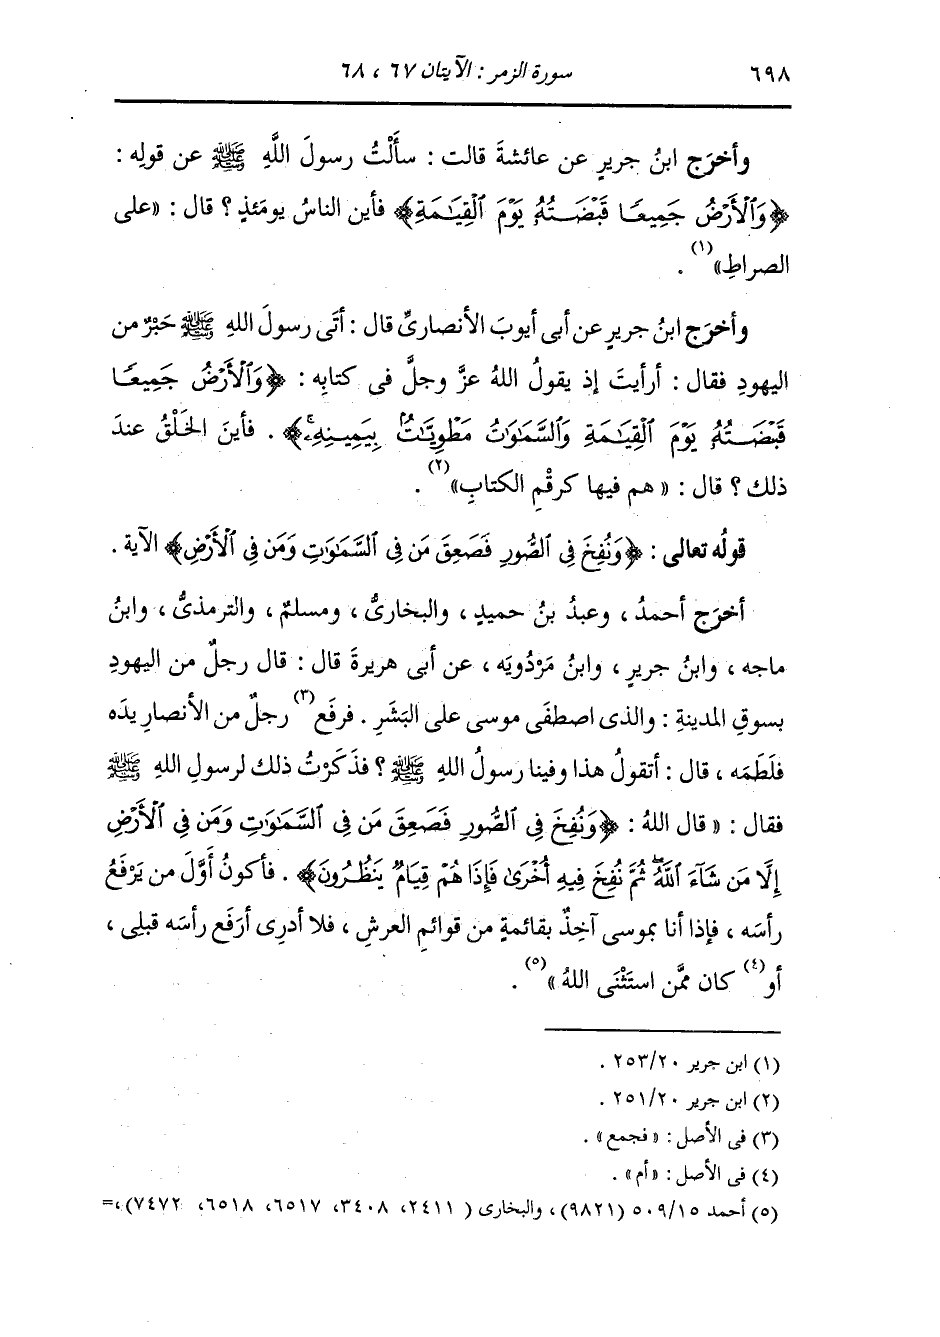 ٦٩٨
سورة الزمر : الآيتان ٦٧ ، ٦٨
وأخرَج ابنُ جريرٍ عن عائشةَ قالت : سألْتُ رسولَ اللَّهِ ﷺ عن قولِه :
﴿وَٱلْأَرْضُ جَمِيعًا قَبْضَتُهُۥ يَوْمَ ٱلْقِيَٰمَةِ﴾ فأين الناسُ يومَئذٍ ؟ قال : «على
الصراطِ»(١) .
وأخرَج ابنُ جريرٍ عن أبى أيوبَ الأنصارىِّ قال : أتَى رسولَ اللهِ ﷺ حَبْرٌ من
اليهودِ فقال : أرأيتَ إذ يقولُ اللهُ عزَّ وجلَّ فى كتابِه : ﴿وَٱلْأَرْضُ جَمِيعًا
قَبْضَتُهُۥ يَوْمَ ٱلْقِيَٰمَةِ وَٱلسَّمَٰوَٰتُ مَطْوِيَّٰتٌۢ بِيَمِينِهِۦۚ﴾ . فأينَ الخَلْقُ عندَ
ذلك ؟ قال : « هم فيها كرقْمِ الكتابِ»(٢) .
قولُه تعالى : ﴿وَنُفِخَ فِى ٱلصُّورِ فَصَعِقَ مَن فِى ٱلسَّمَٰوَٰتِ وَمَن فِى ٱلْأَرْضِ﴾ الآية .
أخرَج أحمدُ ، وعبدُ بنُ حميدٍ ، والبخارىُّ ، ومسلمٌ ، والترمذىُّ ، وابنُ
ماجه ، وابنُ جريرٍ ، وابنُ مَرْدُويَه ، عن أبى هريرةَ قال : قال رجلٌ من اليهودِ
بسوقِ المدينةِ : والذى اصطفَى موسى على البَشَرِ . فرفَع(٣) رجلٌ من الأنصارِ يدَه
فلَطَمَه ، قال : أتقولُ هذا وفينا رسولُ اللهِ ﷺ ؟ فذَكَرْتُ ذلك لرسولِ اللهِ ﷺ
فقال : « قال اللهُ : ﴿وَنُفِخَ فِى ٱلصُّورِ فَصَعِقَ مَن فِى ٱلسَّمَٰوَٰتِ وَمَن فِى ٱلْأَرْضِ
إِلَّا مَن شَآءَ ٱللَّهُۖ ثُمَّ نُفِخَ فِيهِ أُخْرَىٰ فَإِذَا هُمْ قِيَامٌ يَنظُرُونَ﴾ . فأكونُ أوَّلَ من يَرْفَعُ
رأسَه ، فإذا أنا بموسى آخِذٌ بقائمةٍ من قوائمِ العرشِ ، فلا أدرِى أرَفَع رأسَه قبلِى ،
أو(٤) كان ممَّن استَثْنَى اللهُ »(٥) .
(١) ابن جرير ٢٥٣/٢٠ .
(٢) ابن جرير ٢٥١/٢٠ .
(٣) فى الأصل : « فجمع» .
(٤) فى الأصل : «أم» .
(٥) أحمد ٥٠٩/١٥ (٩٨٢١) ، والبخارى ( ٢٤١١، ٣٤٠٨، ٦٥١٧، ٦٥١٨، ٧٤٧٢)،=